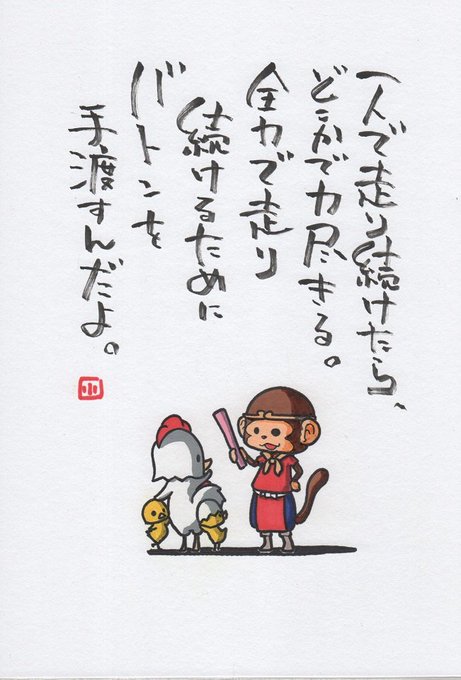 一人で走り続けたら、
どこかで力尽きる。
全力で走り
続けるために
バトンを
手渡すんだよ。
小